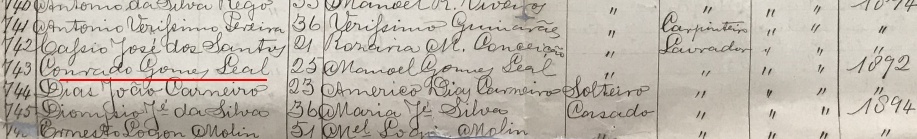 740 Antonio da Silva Rego 35 Manoel R. " " " 1894
741 Antonio Verissimo Pereira 36 Verissimo Guimarães " Carpinteiro " " "
742 Cassio José dos Santos 21 Rozaria M. Conceição " Lavrador " " "
743 Conrado Gomes Leal 25 Manoel Gomes Leal " " " " 1892
744 Dias João Carneiro 23 Americo Dias Carneiro Solteiro " " " "
745 Dionisio Je. da Silva 36 Maria Je. Silva Casado " " " 1894
Ernesto Molin 51 Mel. Molin " " " " "